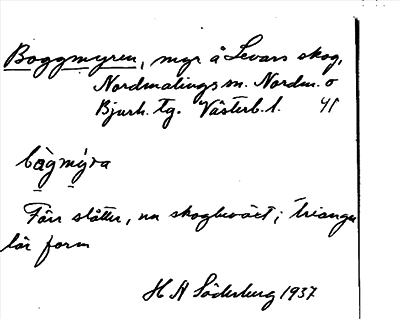 Boggmyren, myr å Levars skog,
Nordmalings sn. Nordm. o
Bjurh. tg. Västerb. l. 41
bògmýra
Förr slåtter, nu skogbeväxt; triangu
lär form
H A Söderberg 1937